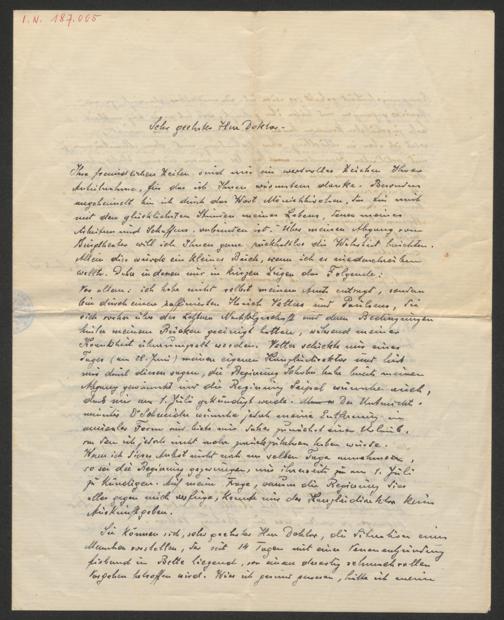 I. N. 187.005
Sehr geehrter Herr Doktor.-
Ihre freundlichen Zeilen sind mir ein wertvolles Zeichen Ihrer
Anteilnahme, für das ich Ihnen wärmstens danke. Besonders
angeheimelt bin ich durch das Wort Mönichkirchen, das für mich
mit den glücklichsten Stunden meines Lebens, jenen meines
Arbeitens und Schaffens, verbunden ist. Über meinen Abgang vom
Burgtheater will ich Ihnen ganz rückhaltlos die Wahrheit berichten.
Allein das würde ein kleines Buch, wenn ich es niederschreiben
wollte. Daher in kurzen Zügen das Folgende:
Vor allem: ich habe nicht selbst meinem Amte entsagt, sondern
bin durch einen raffinierten Streich Vetters und Paulsens, die
sich vorher über des Letzteren Nachfolgerschaft und deren Bedingungen
hinter meinem Rücken geeinigt hatten, während meiner
Krankheit überrumpelt worden. Vetter schickte mir eines
Tages (am 28. Juni) meinen eigenen Kanzleidirektor und ließ
mir durch diesen sagen, die Regierung Schober habe bereits meinen
Abgang gewünscht und die Regierung Seipel wünsche auch,
daß mir am 1. Juli gekündigt werde. Der Unterrichts-
minister Dr Schneider wünsche jedoch meine Entfernung in
 Form und biete mir daher zunächst einen Urlaub,
von dem ich jedoch nicht mehr zurückzukehren haben würde.
Wenn ich dieses Anbot nicht noch am selben Tage annehme,
so sei die Regierung gezwungen, mir ihrerseits zum 1. Juli
zu kündigen. Auf meine Frage, warum die Regierung dies
alles gegen mich verfüge, konnte mir der Kanzleidirektor keine
Auskunft geben.
Sie können sich, sehr geehrter Herr Doktor, die Situation eines
Menschen vorstellen, der seit 14 Tagen mit einer Venenentzündung
fiebernd im Bette liegend, von einem derartig schmachvollen
Vorgehen betroffen wird. Wäre ich gesund gewesen, hätte ich meine